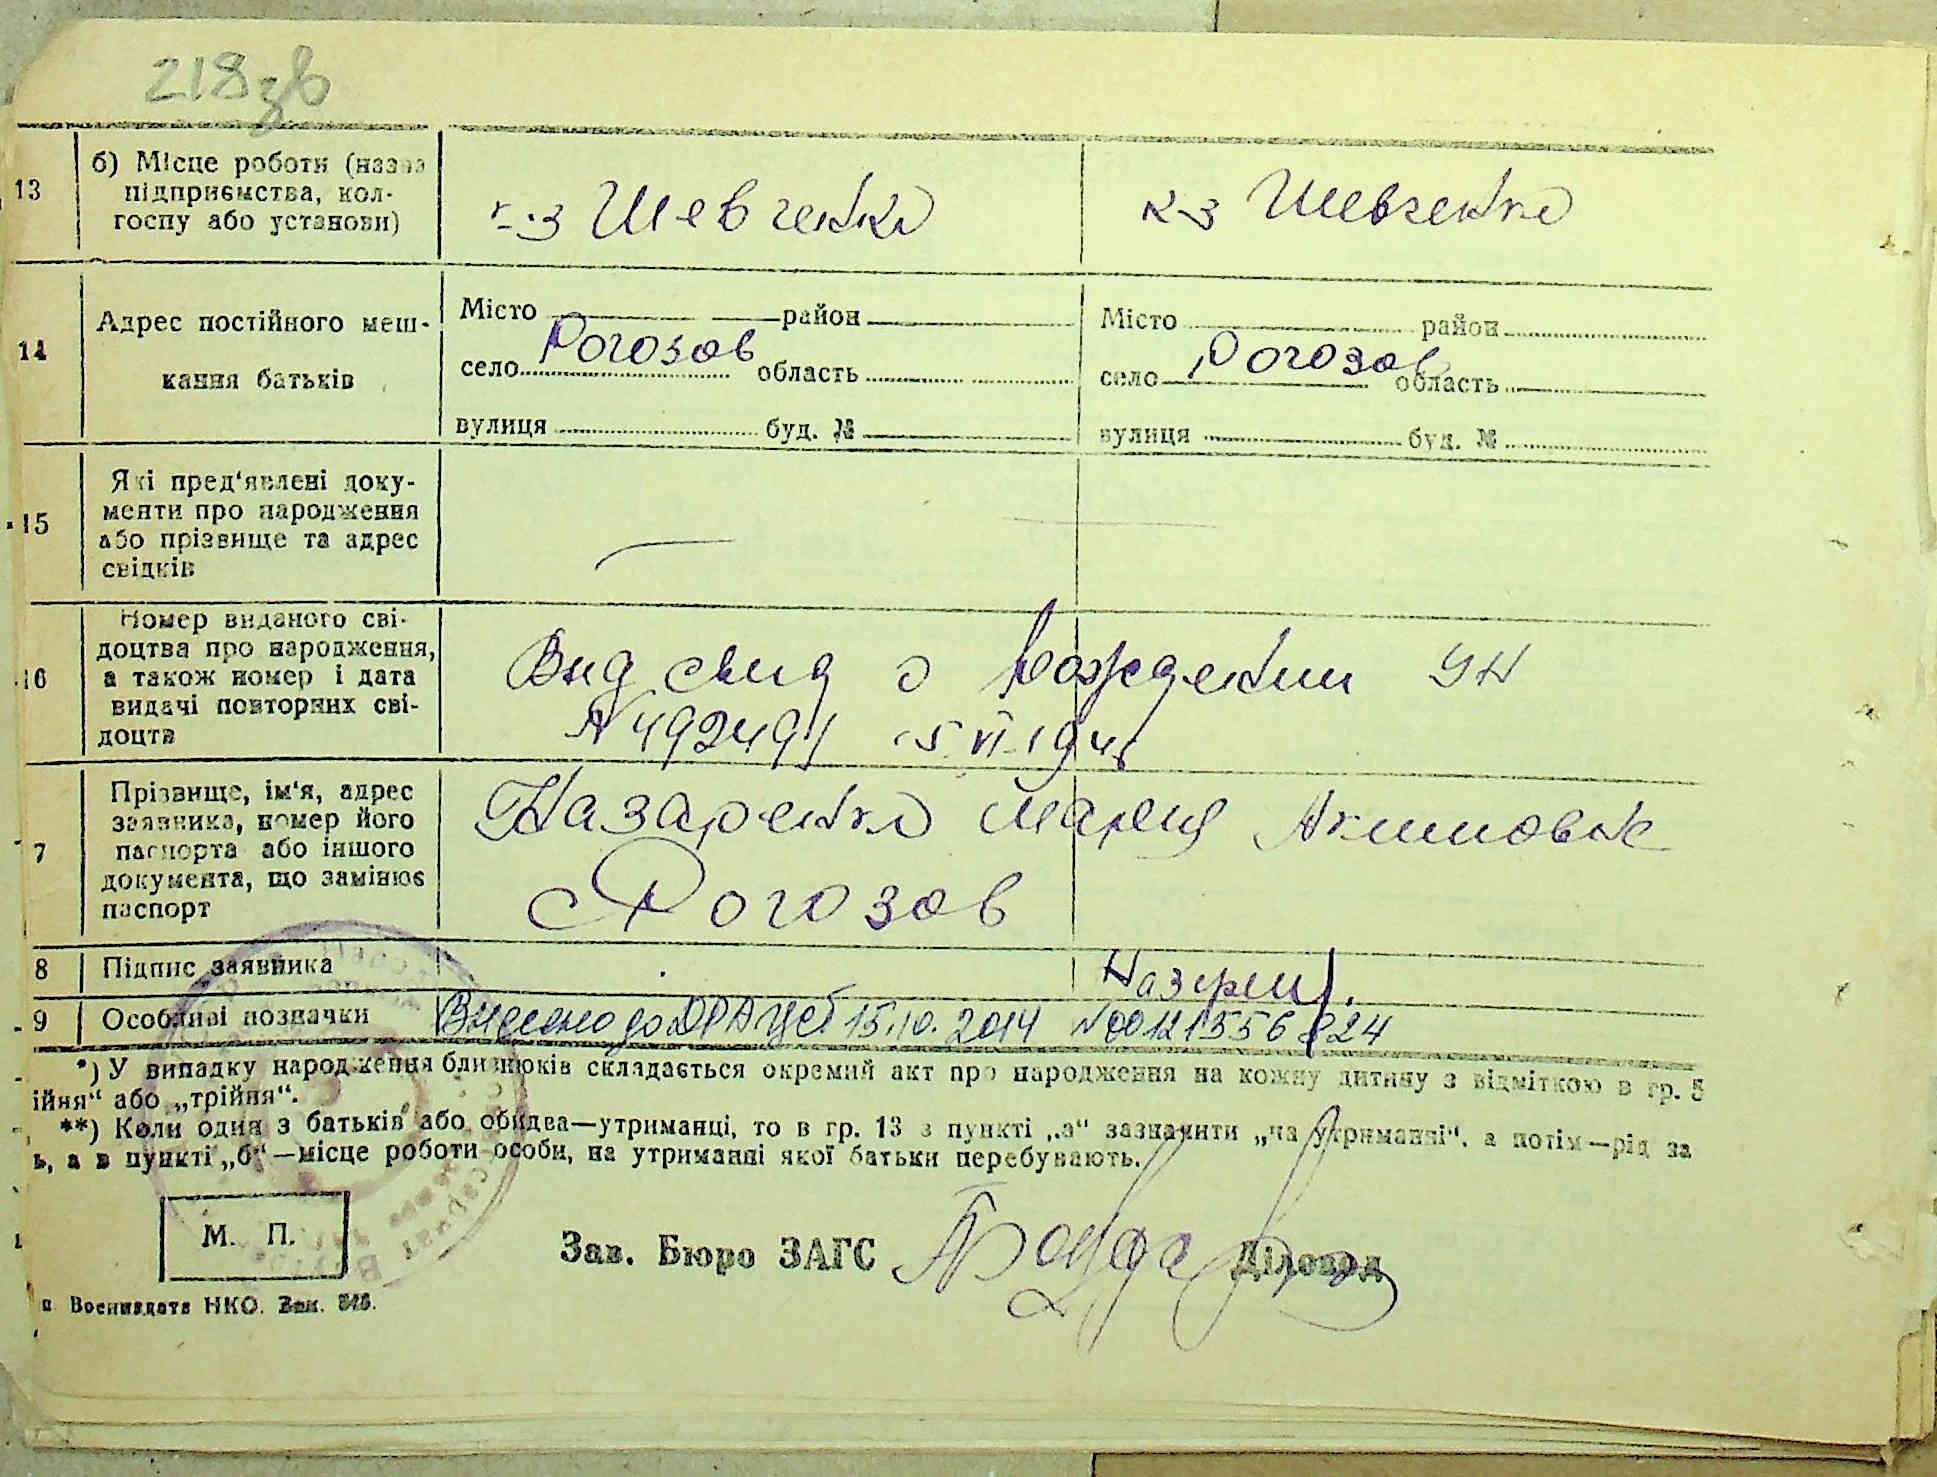 218зв
13 б) Місце роботи (назва підприємства, колгоспу або установи)
к-з Шевченко
к-з Шевченко
14 Адрес постійного мешкання батьків
Місто район
село Рогозов область
вулиця буд. №
Місто район
село Рогозов область
вулиця буд. №
15 Які пред'явлені документи про народження або прізвище та адрес свідків
16 Номер виданого свідоцтва про народження, а також номер і дата видачі повторних свідоцтв
Выд свид о рождении УН
N 492491 5 VI 194
7 Прізвище, ім'я, адрес заявника, номер його паспорта або іншого документа, що замінює паспорт
Назаренко Мария Акимовна
с Рогозов
8 Підпис заявника
9 Особливі позначки
Внесено до ДРАЦСГ 15.10.2014 N 00121556824
*) У випадку народження близнюків складається окремий акт про народження на кожну дитину з відміткою в гр. 5
ійня" або „трійня".
**) Коли один з батьків або обидва—утриманці, то в гр. 13 в пункті „а" зазначити „на утриманні", а потім—рід за
ь, а в пункті „б"—місце роботи особи, на утриманні якої батьки перебувають.
М. П.
Зав. Бюро ЗАГС
Діловод
Воениздата НКО. Зак.